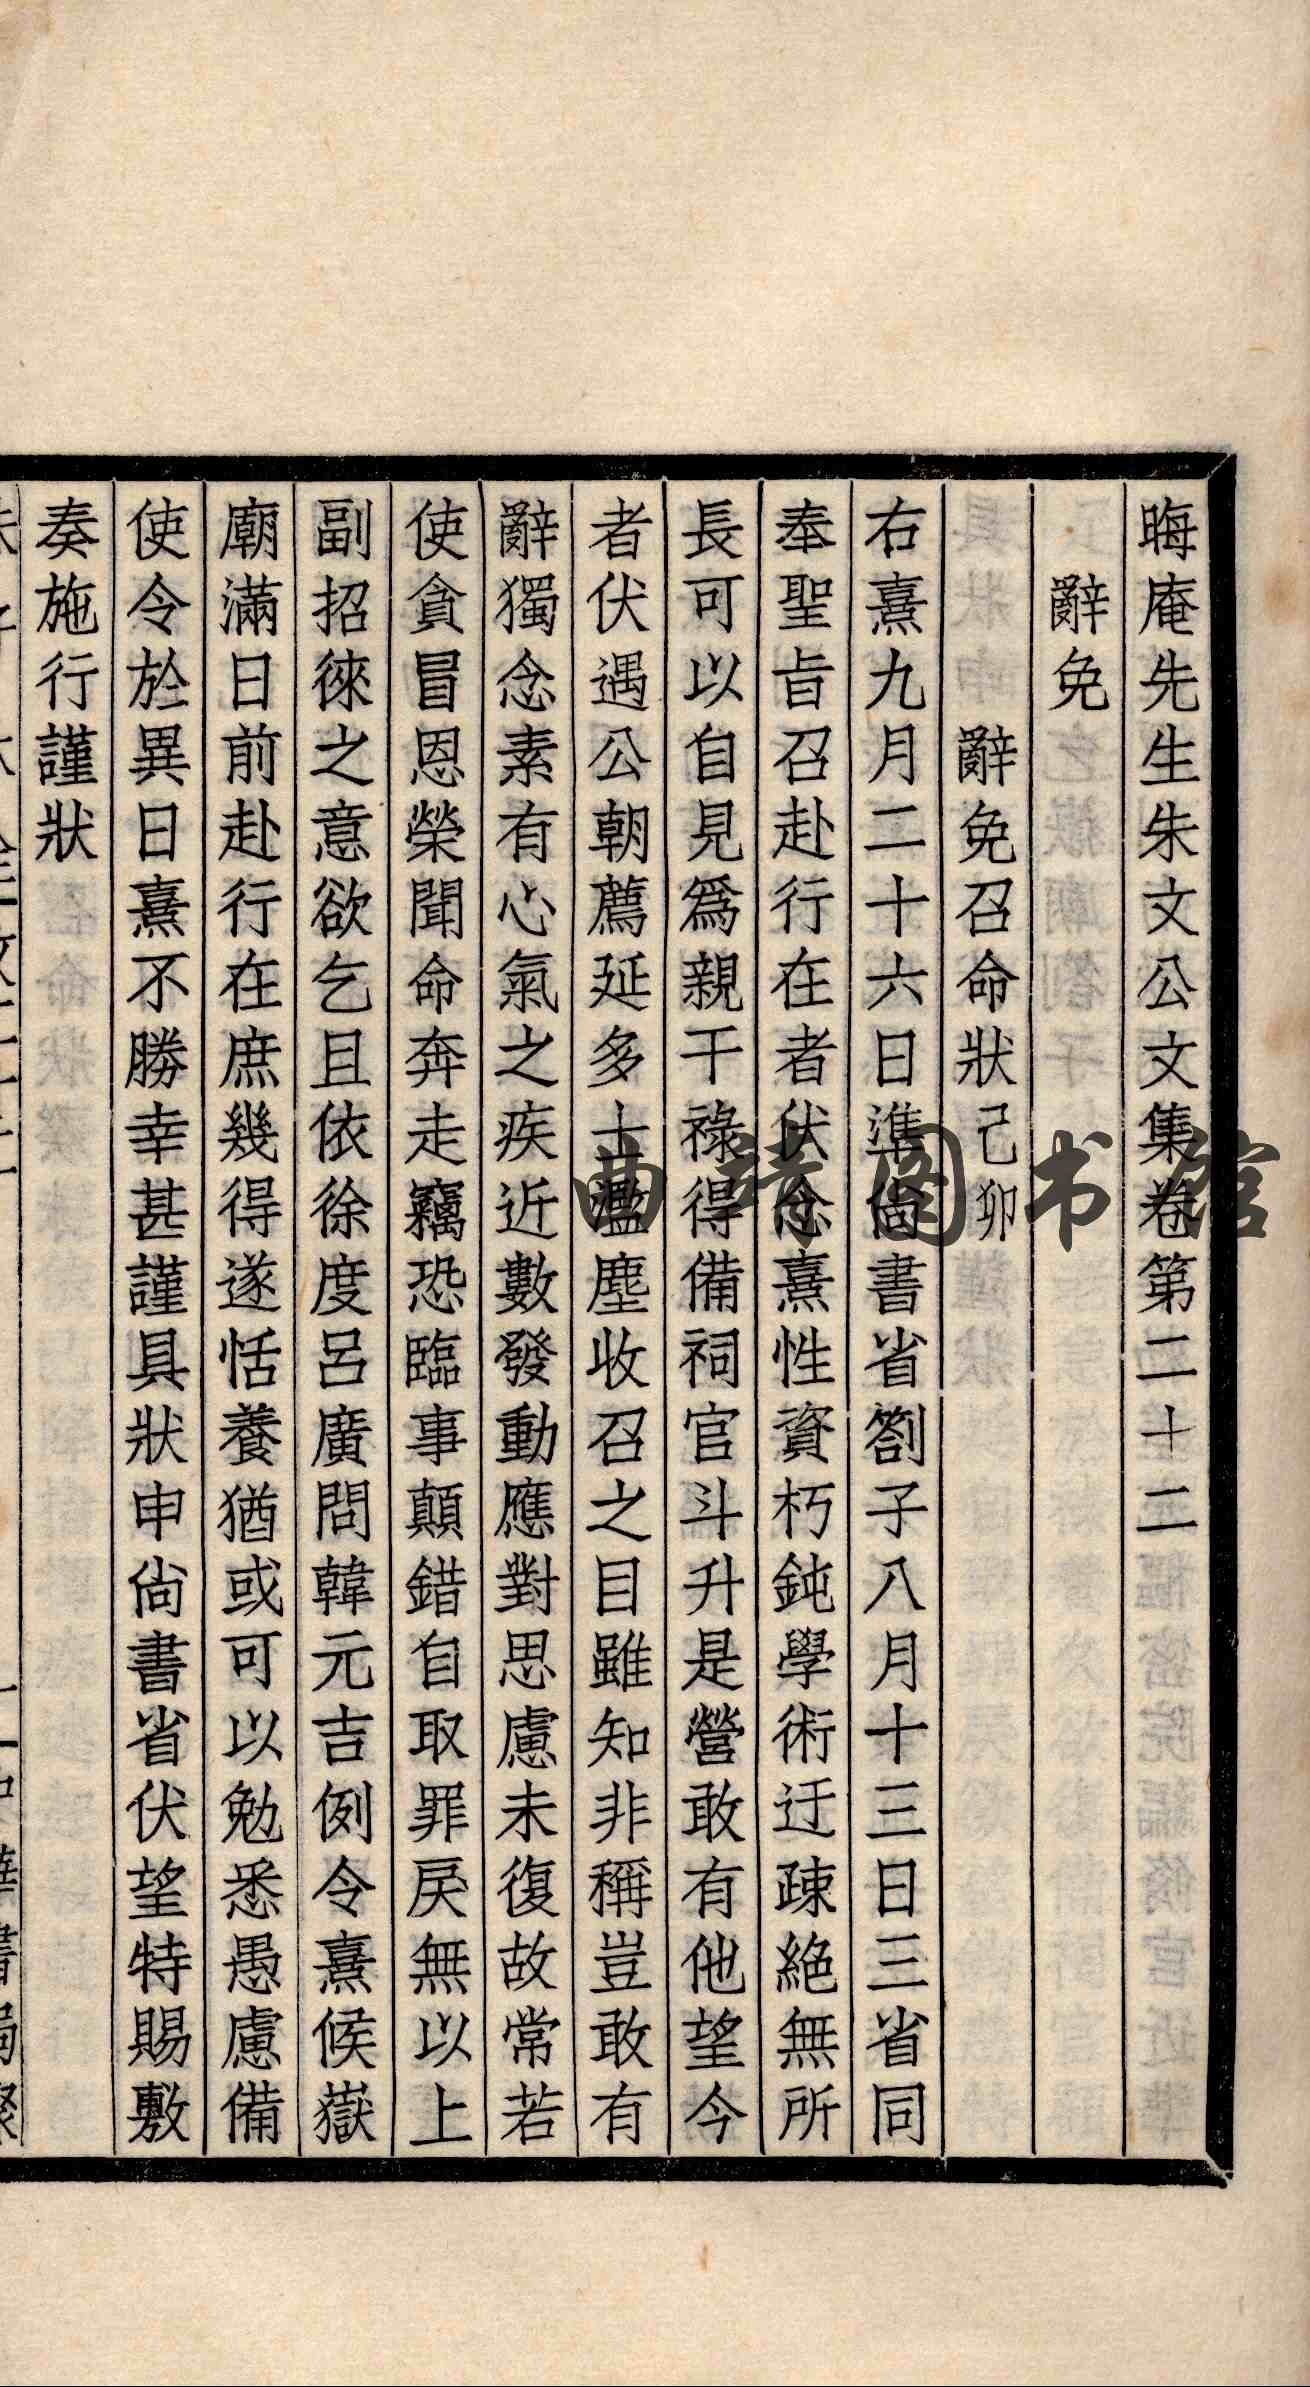 晦庵先生朱文公文集卷第二十二
辭免
辭免召命狀己卯
右熹九月二十六日準尙書省劄子八月十三日三省同
奉聖旨召赴行在者伏念熹性資朽鈍學術迂疎絕無所
長可以自見爲親干祿得備祠官斗升是營敢有他望今
者伏遇公朝薦延多士濫塵收召之目雖知非稱豈敢有
辭獨念素有心氣之疾近數發動應對思慮未復故常若
使貪冒恩榮聞命奔走竊恐臨事顛錯自取罪戾無以上
副招徠之意欲乞且依徐度呂廣問韓元吉例令熹候嶽
廟滿日前赴行在庶幾得遂恬養猶或可以勉悉愚慮備
使令於異日熹不勝幸甚謹具狀申尙書省伏望特賜敷
奏施行謹狀
曲靖图书馆